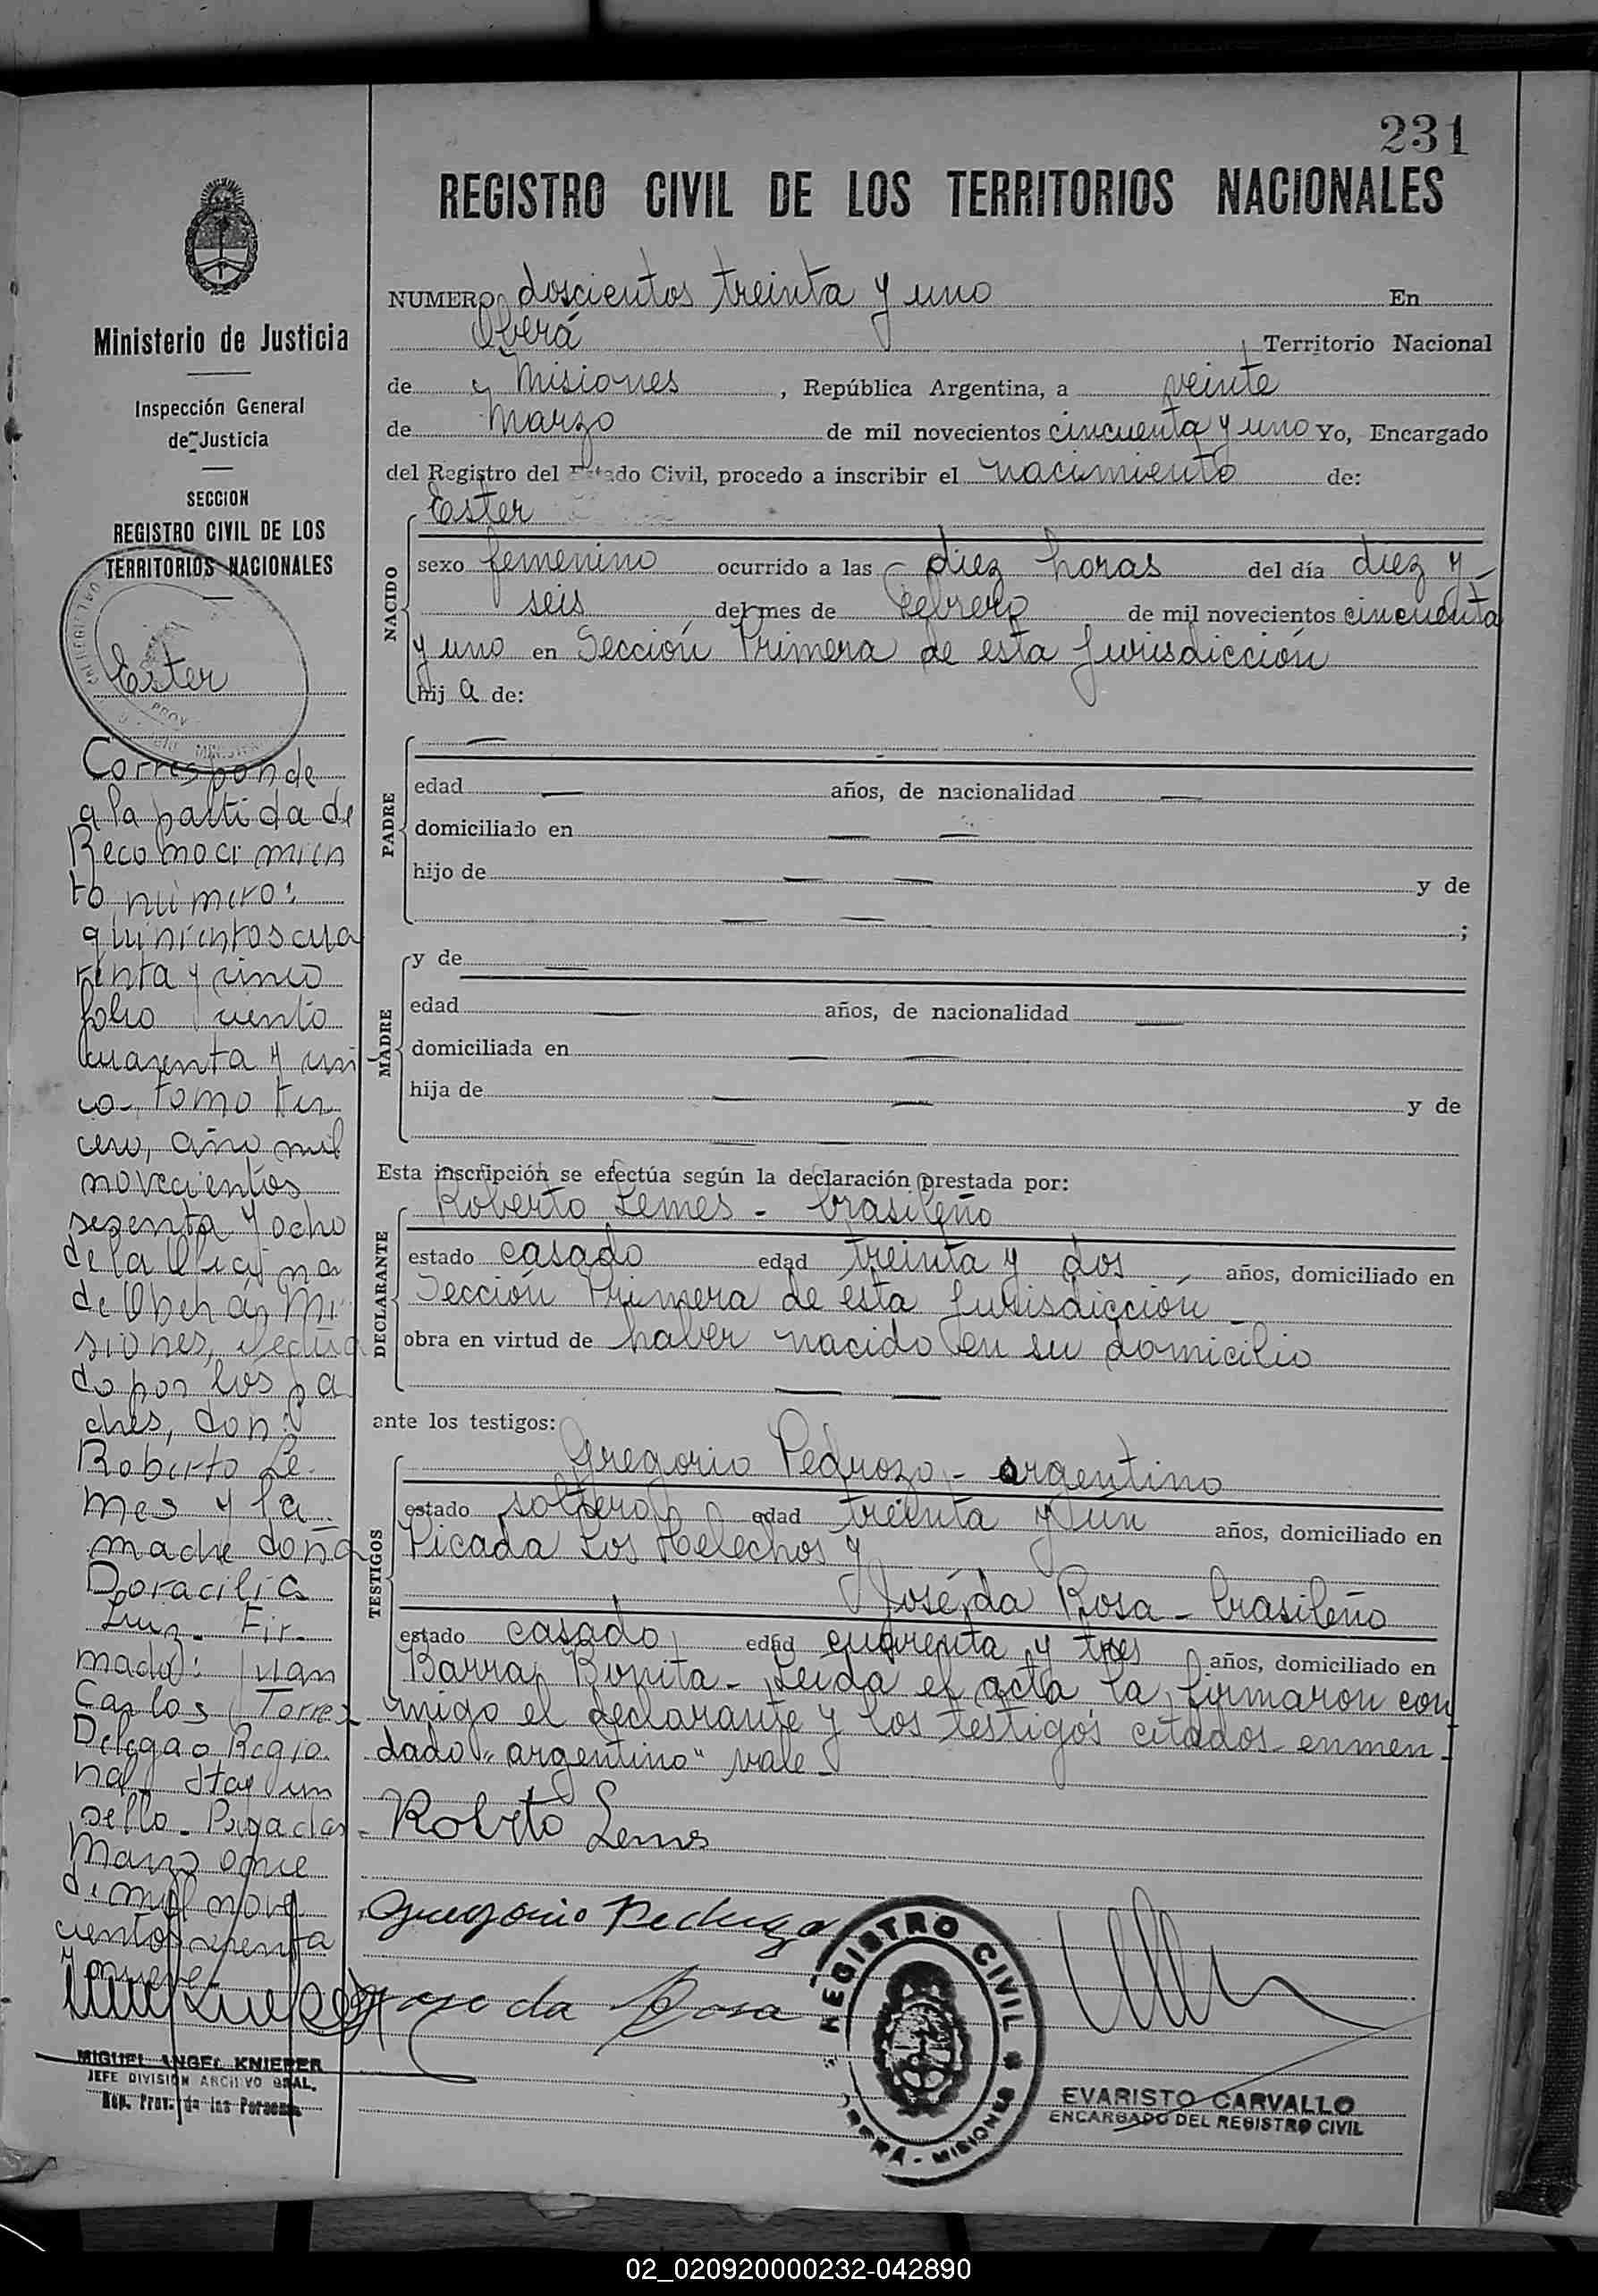 231
REGISTRO CIVIL DE LOS TERRITORIOS NACIONALES
NUMERO doscientos treinta y uno En
Oberá Territorio Nacional
de Misiones, República Argentina, a veinte
de Marzo de mil novecientos cincuenta y uno Yo, Encargado
del Registro del Estado Civil, procedo a inscribir el nacimiento de:
NACIDO
Ester
sexo femenino ocurrido a las diez horas del día diez y
seis del mes de Febrero de mil novecientos cincuenta
y uno en Sección Primera de esta Jurisdicción
hij a de:
PADRE
edad años, de nacionalidad
domiciliado en
hijo de y de
;
MADRE
y de
edad años, de nacionalidad
domiciliada en
hija de y de
Esta inscripción se efectúa según la declaración prestada por:
DECLARANTE
Roberto Lemes - brasileño
estado casado edad treinta y dos años, domiciliado en
Sección Primera de esta Jurisdicción
obra en virtud de haber nacido en su domicilio
ante los testigos:
TESTIGOS
Gregorio Pedrozo - argentino
estado soltero edad treinta y un años, domiciliado en
Picada Los Helechos y
José da Rosa - brasileño
estado casado edad cuarenta y tres años, domiciliado en
Barra Bonita - Leida el acta la firmaron con
migo el declarante y los testigos citados - enmen-
dado "argentino" vale -
Roberto Lemes
Gregorio Pedrozo
Jose da Rosa
REGISTRO CIVIL
OBERÁ - MISIONES
EVARISTO CARVALLO
ENCARGADO DEL REGISTRO CIVIL
Ministerio de Justicia
Inspección General
de Justicia
SECCION
REGISTRO CIVIL DE LOS
TERRITORIOS NACIONALES
Ester
Corresponde
a la partida de
Reconocimien
to número:
quinientos cua
renta y cinco
folio ciento
cuarenta y cin
co - tomo ter
cero, año mil
novecientos
sesenta y ocho
de la Oficina
de Oberá, Mi
siones,
do por los pa
dres, don:
Roberto Le-
mes y la
madre doña
Doracilia
Luiz - Fir-
mado: Juan
Carlos Torres
Delegado Regio-
nal - Hay un
sello - Posadas
Marzo once
de mil nove
cientos sesenta
y nueve -
MIGUEL ANGEL KNIERER
JEFE DIVISIÓN ARCHIVO GRAL.
Reg. Prov. de las Personas
02_020920000232-042890